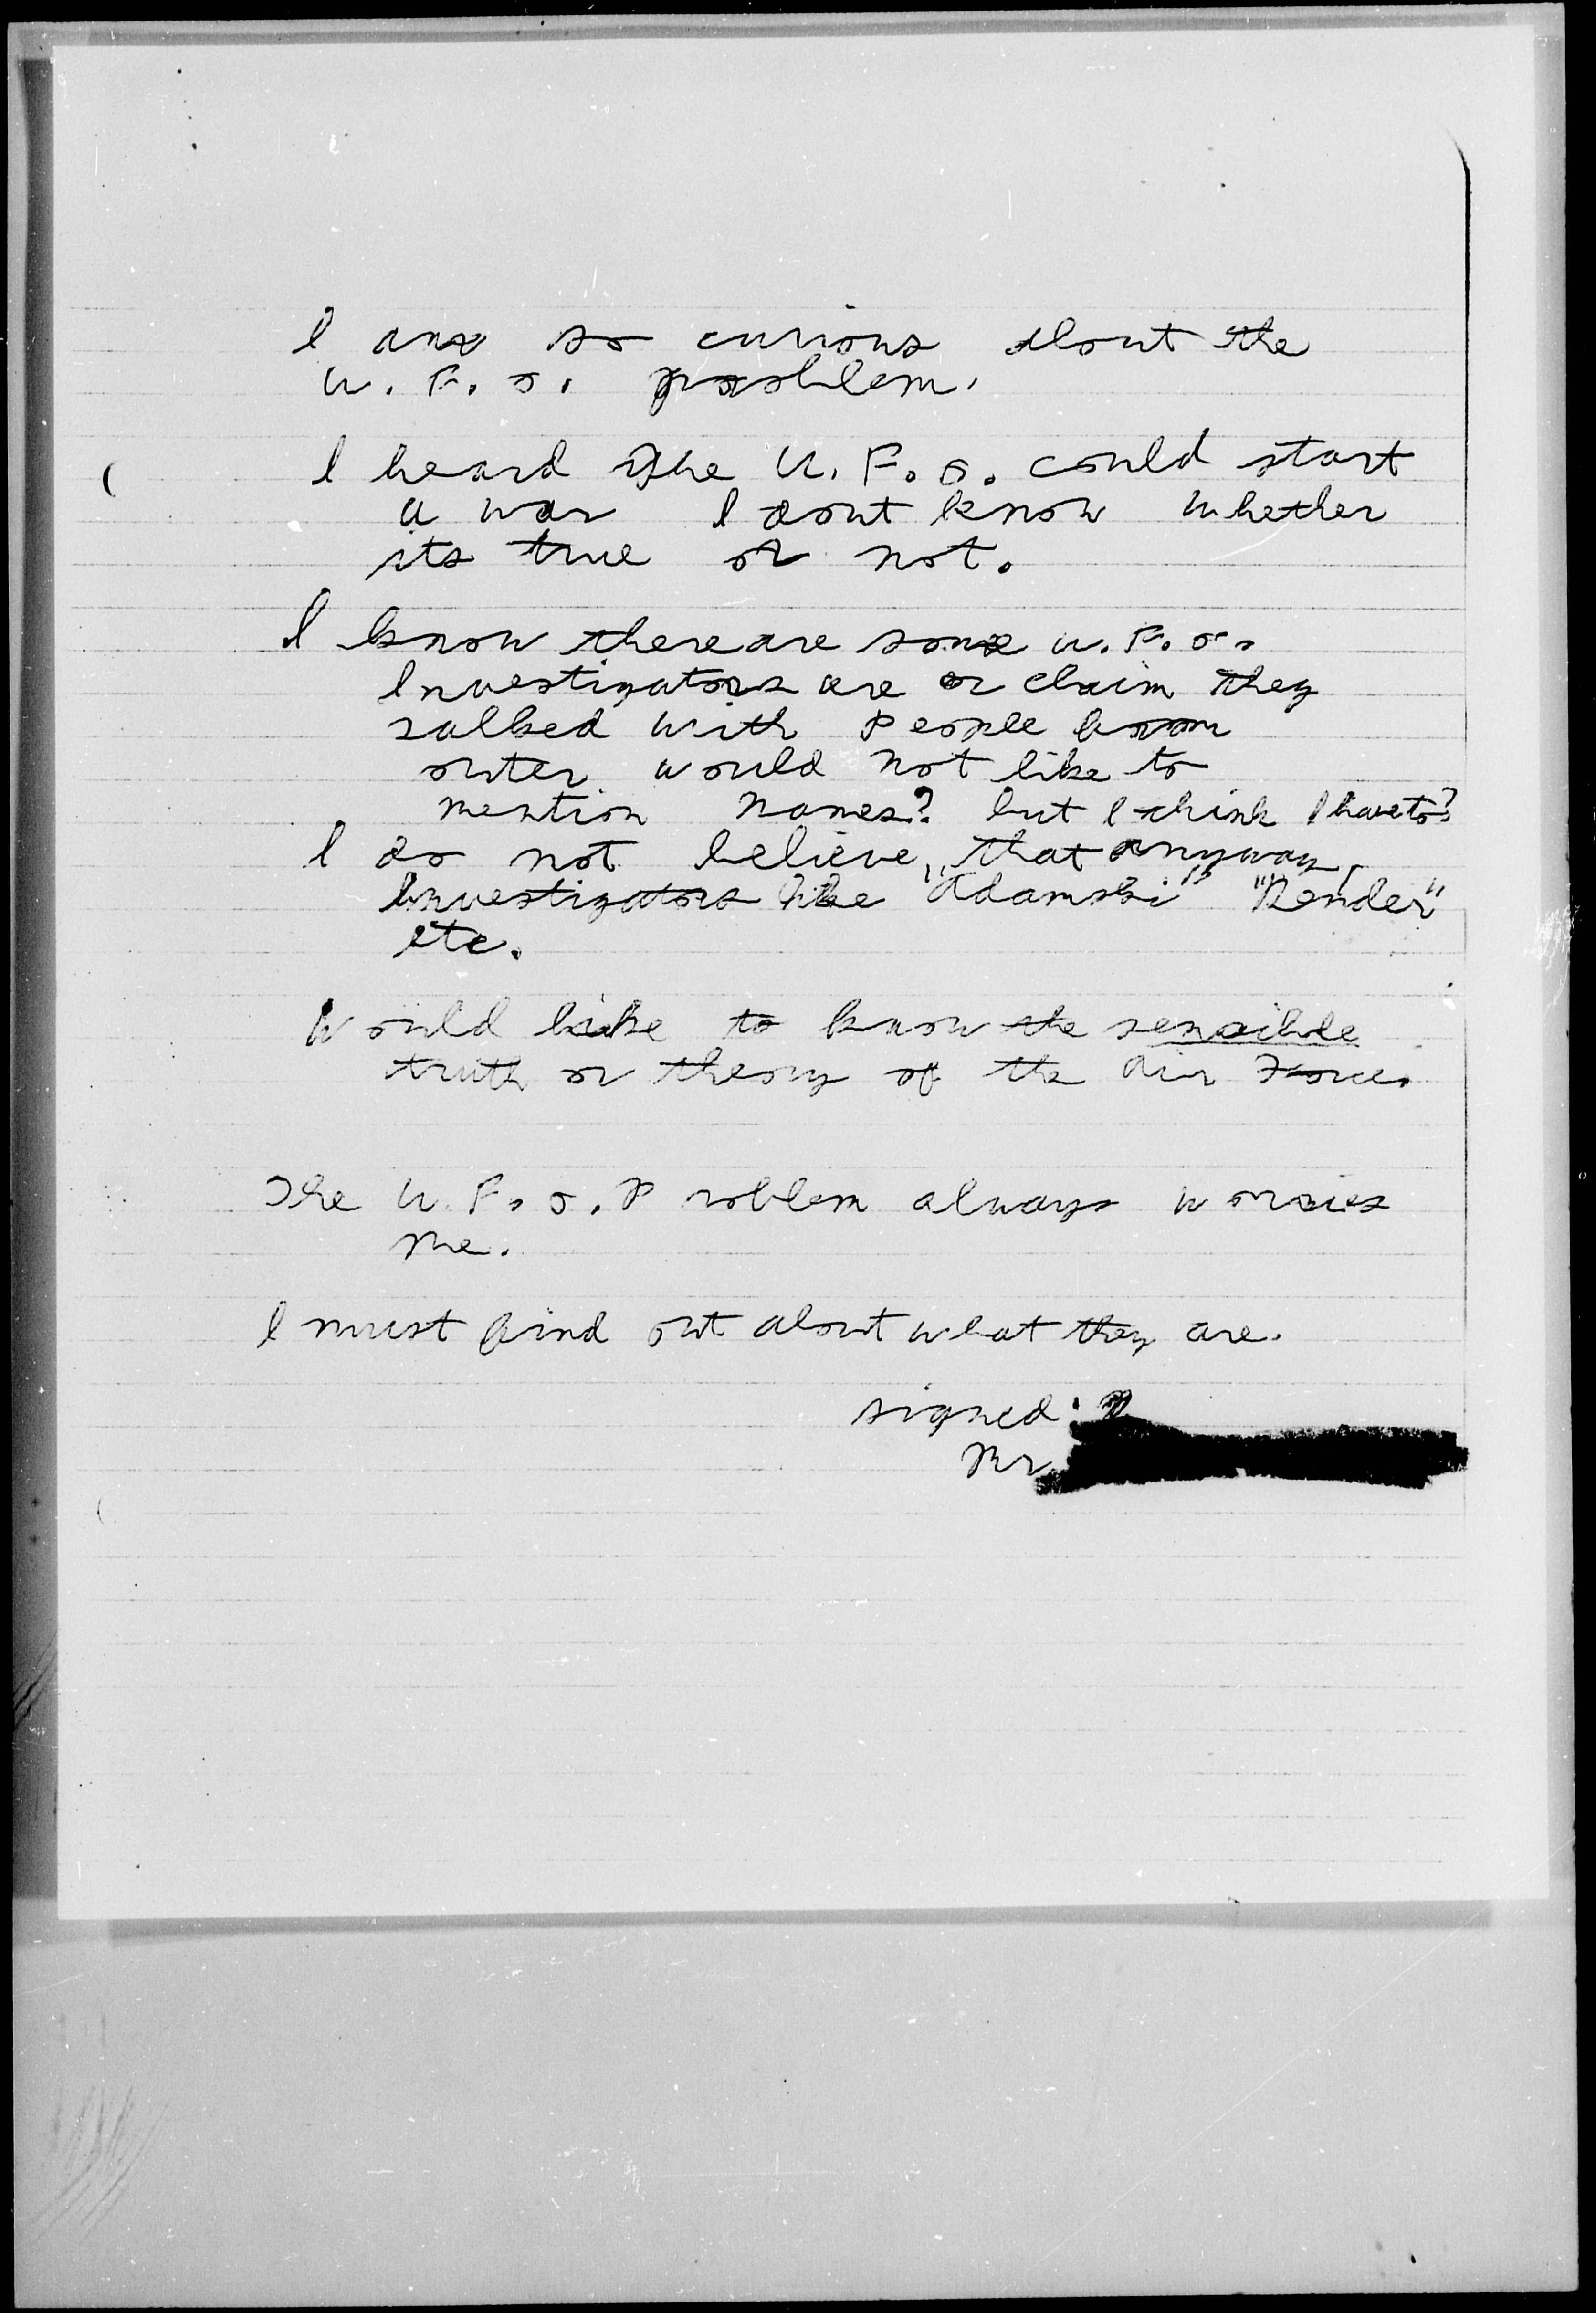 I am so curious about the
U. F. O. problem.
I heard the U. F. O. could start
a war I dont know whether
its true or not.
I know there are some U. F. O.
Investigators are or claim they
talked with People from
outer would not like to
mention names? but I think I have to?
I do not believe, that anyway,
Investigators like "Adamski" "Bender"
etc.
Would like to know the sensible
truth or theory of the Air Force.
The U. F. O. Problem always worries
me.
I must find out about what they are.
signed:
Mr.